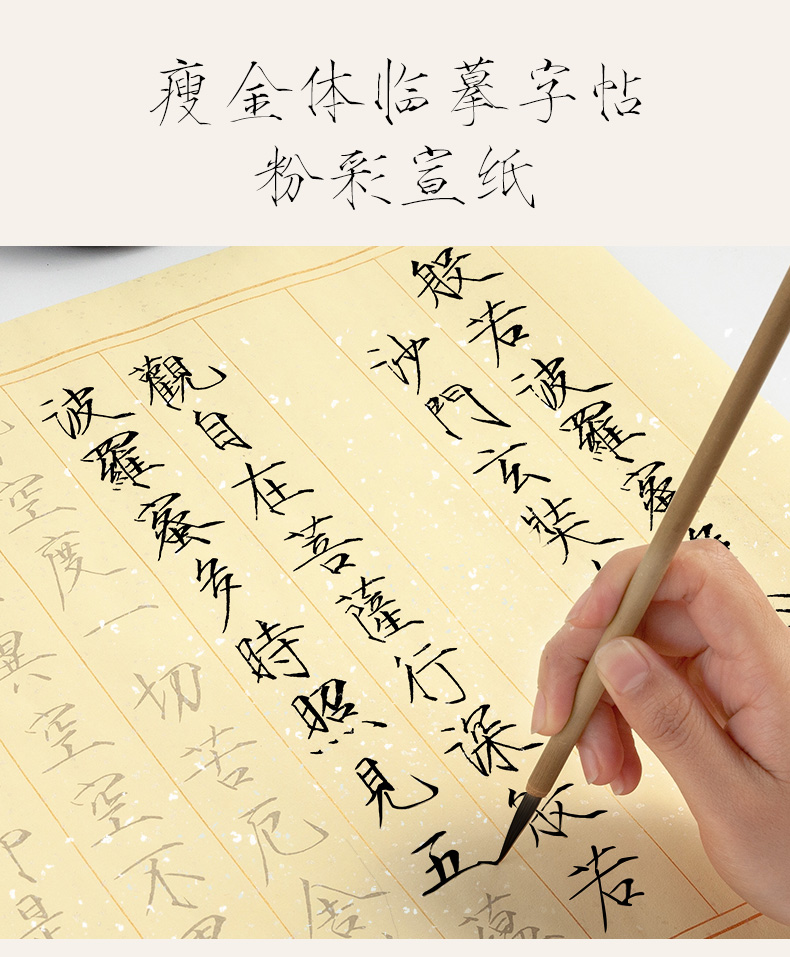 瘦金体临摹字帖
粉彩宣纸
般若波羅蜜
沙門玄奘
觀自在菩薩行深般若
波羅蜜多時照見五
空度一切苦厄舍
異空空不
是